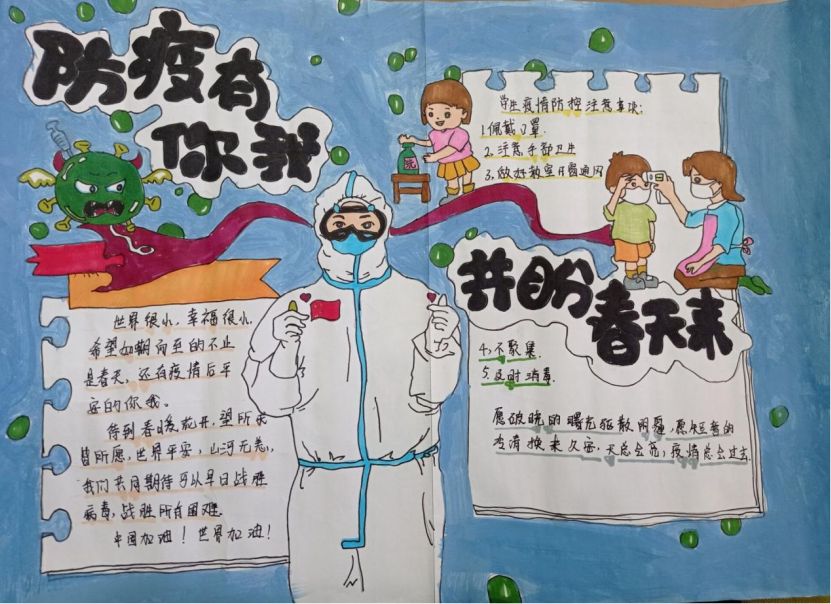 防疫有
你我
学生疫情防控注意事项:
1.佩戴口罩
2.注意手部卫生
3.做好教室开窗通风
洗
共盼
春天来
世界很小,幸福很小.
希望如期而至的不止
是春天,还有疫情后平
安的你我。
待到春暖花开,望所求
皆所愿,世界平安,山河无恙,
我们共同期待可以早日战胜
病毒,战胜所有困难.
中国加油!世界加油!
4.不聚集.
5.及时消毒.
愿破晓的曙光驱散阴霾,愿短暂的
冷清换来久安.天总会亮,疫情总会过去.